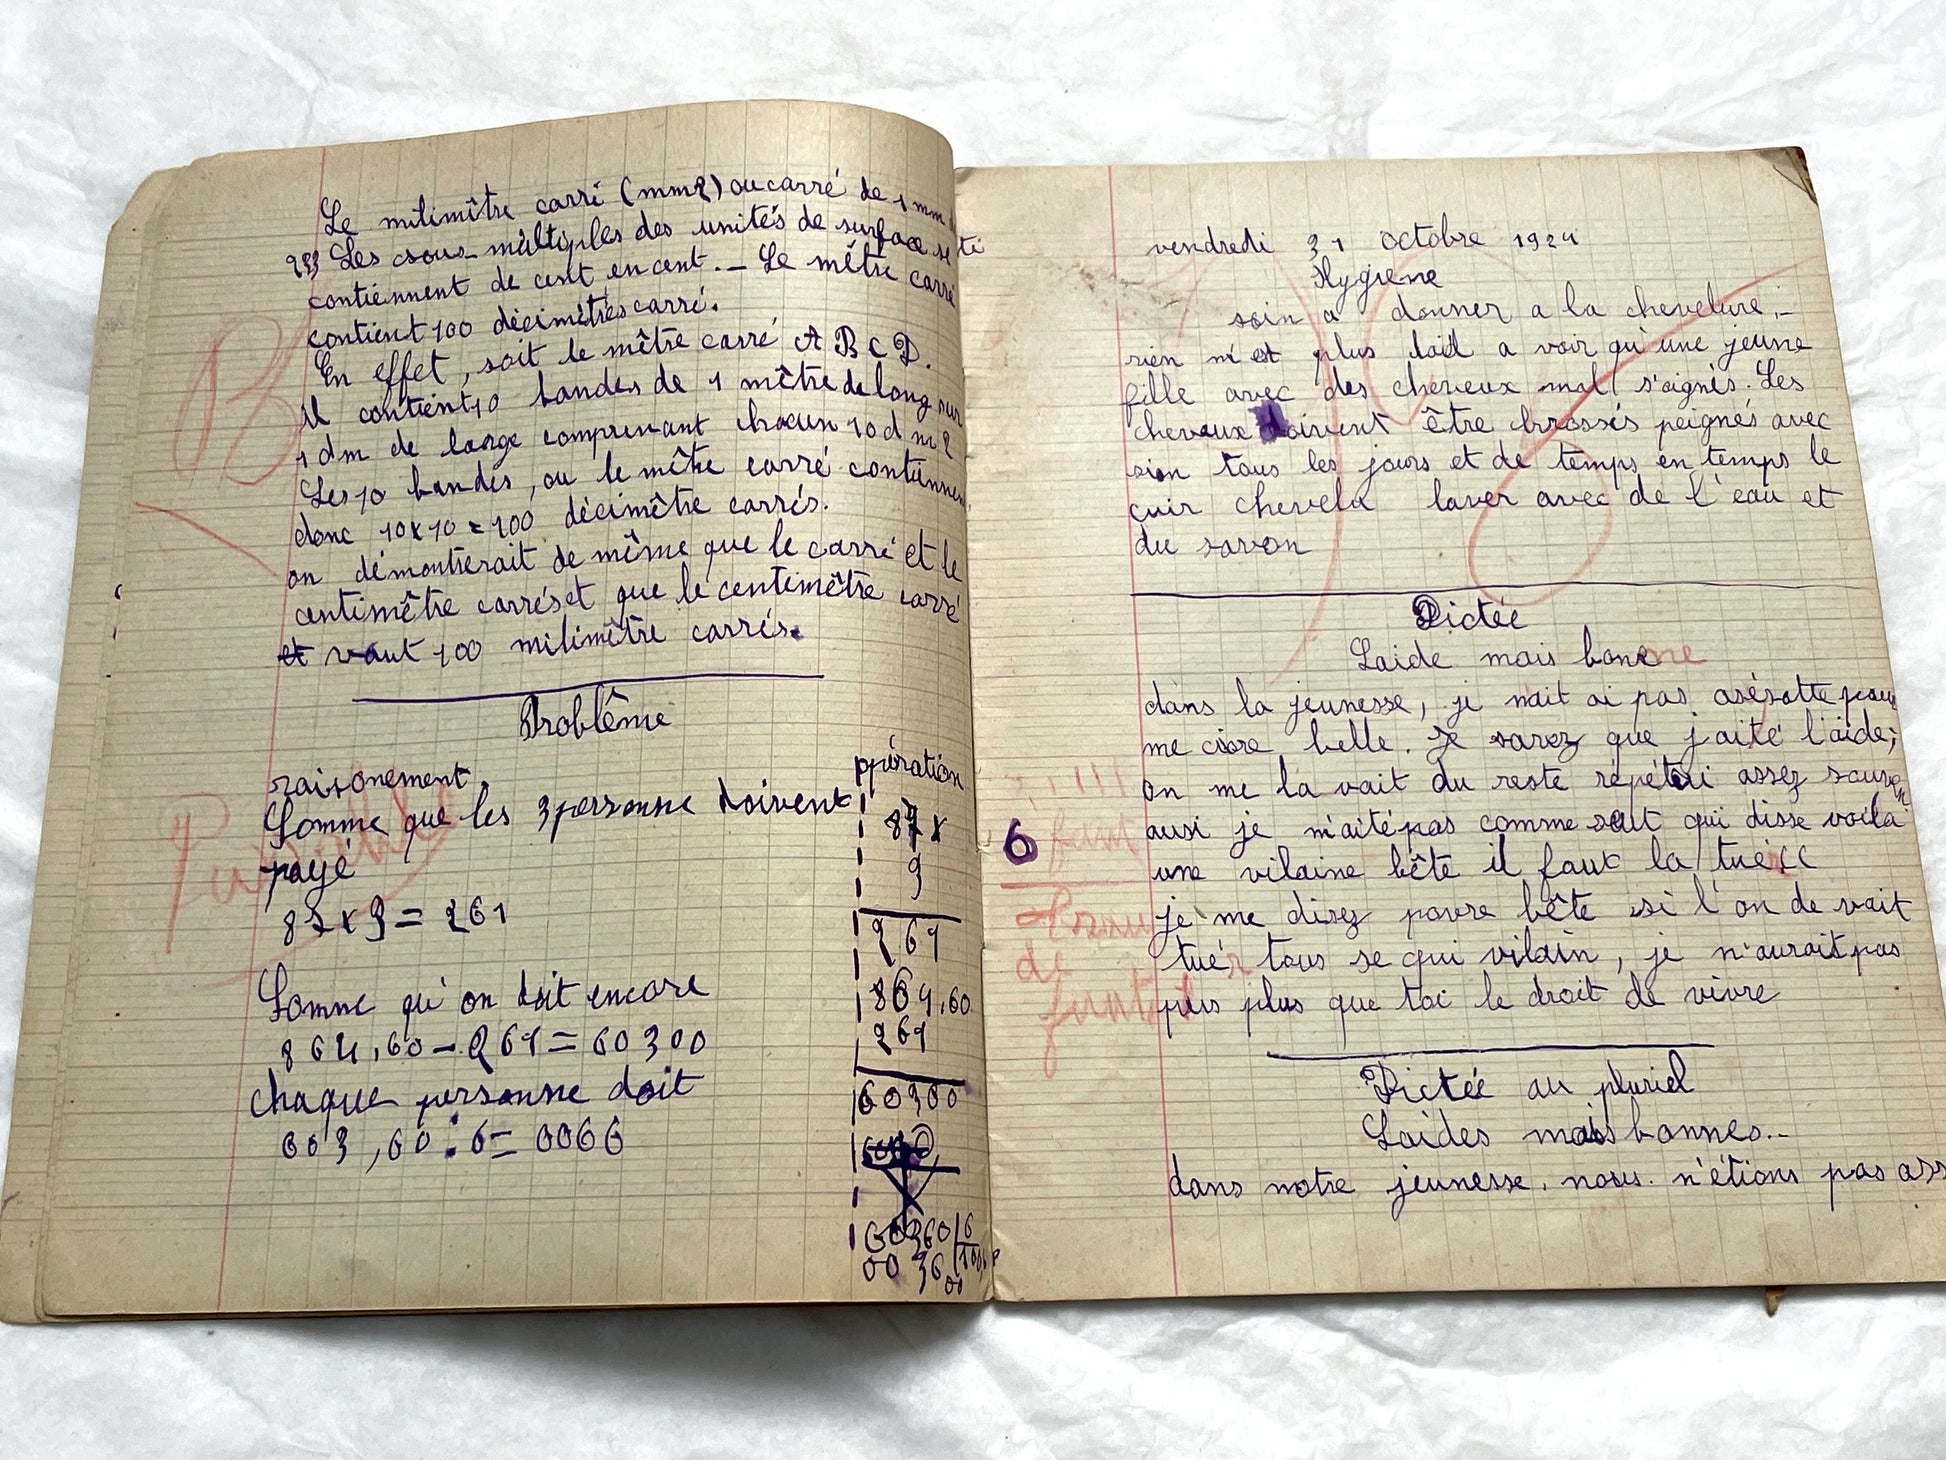 Le milimêtre carré (mm2) ou carré de 1 mm
233 Les sous-multiples des unités de surface se
contiennent de cent en cent. - Le mêtre carré
contient 100 décimêtres carré.
En effet, soit le mêtre carré A B C D.
Il contient 10 bandes de 1 mêtre de long sur
1 dm de large comprenant chacun 10 d m 2
Les 10 bandes, ou le mêtre carré contiennent
donc 10 x 10 = 100 décimêtre carrés.
on démontrerait de même que le carré et le
centimêtre carrés et que le centimêtre carré
et vaut 100 milimêtre carrés.
Problême
raisonement
Somme que les 3 personne doivent
payé
87 x 3 = 261
Somme qu'on doit encore
864,60 - 261 = 60300
chaque personne doit
603,60 : 6 = 0066
ppération
87 x
3
261
864,60
261
60300
60360 6
00 36
00
B
vendredi 31 octobre 1924
Hygiene
soin a donner a la chevelure.-
rien n'est plus laid a voir qu'une jeune
fille avec des cheveux mal s'oignés. Les
cheveux doivent être brossés peignés avec
sion tous les jours et de temps en temps le
cuir chevelu laver avec de l'eau et
du savon
Dictée
Laide mais bonne
dans la jeunesse, je nait ai pas
me cisre belle. Je savez que j'aité l'aide;
on me la vait du reste répété assez
ausi je m'aité pas comme seut qui disse voila
une vilaine bête il faut la tuér
6
je me disez povre bête si l'on de vait
tuér tous se qui vilain, je n'aurait pas
pus plus que toi le droit de vivre
Dictée au pluriel
Laides mais bonnes..
dans notre jeunesse, nous n'étions pas ass